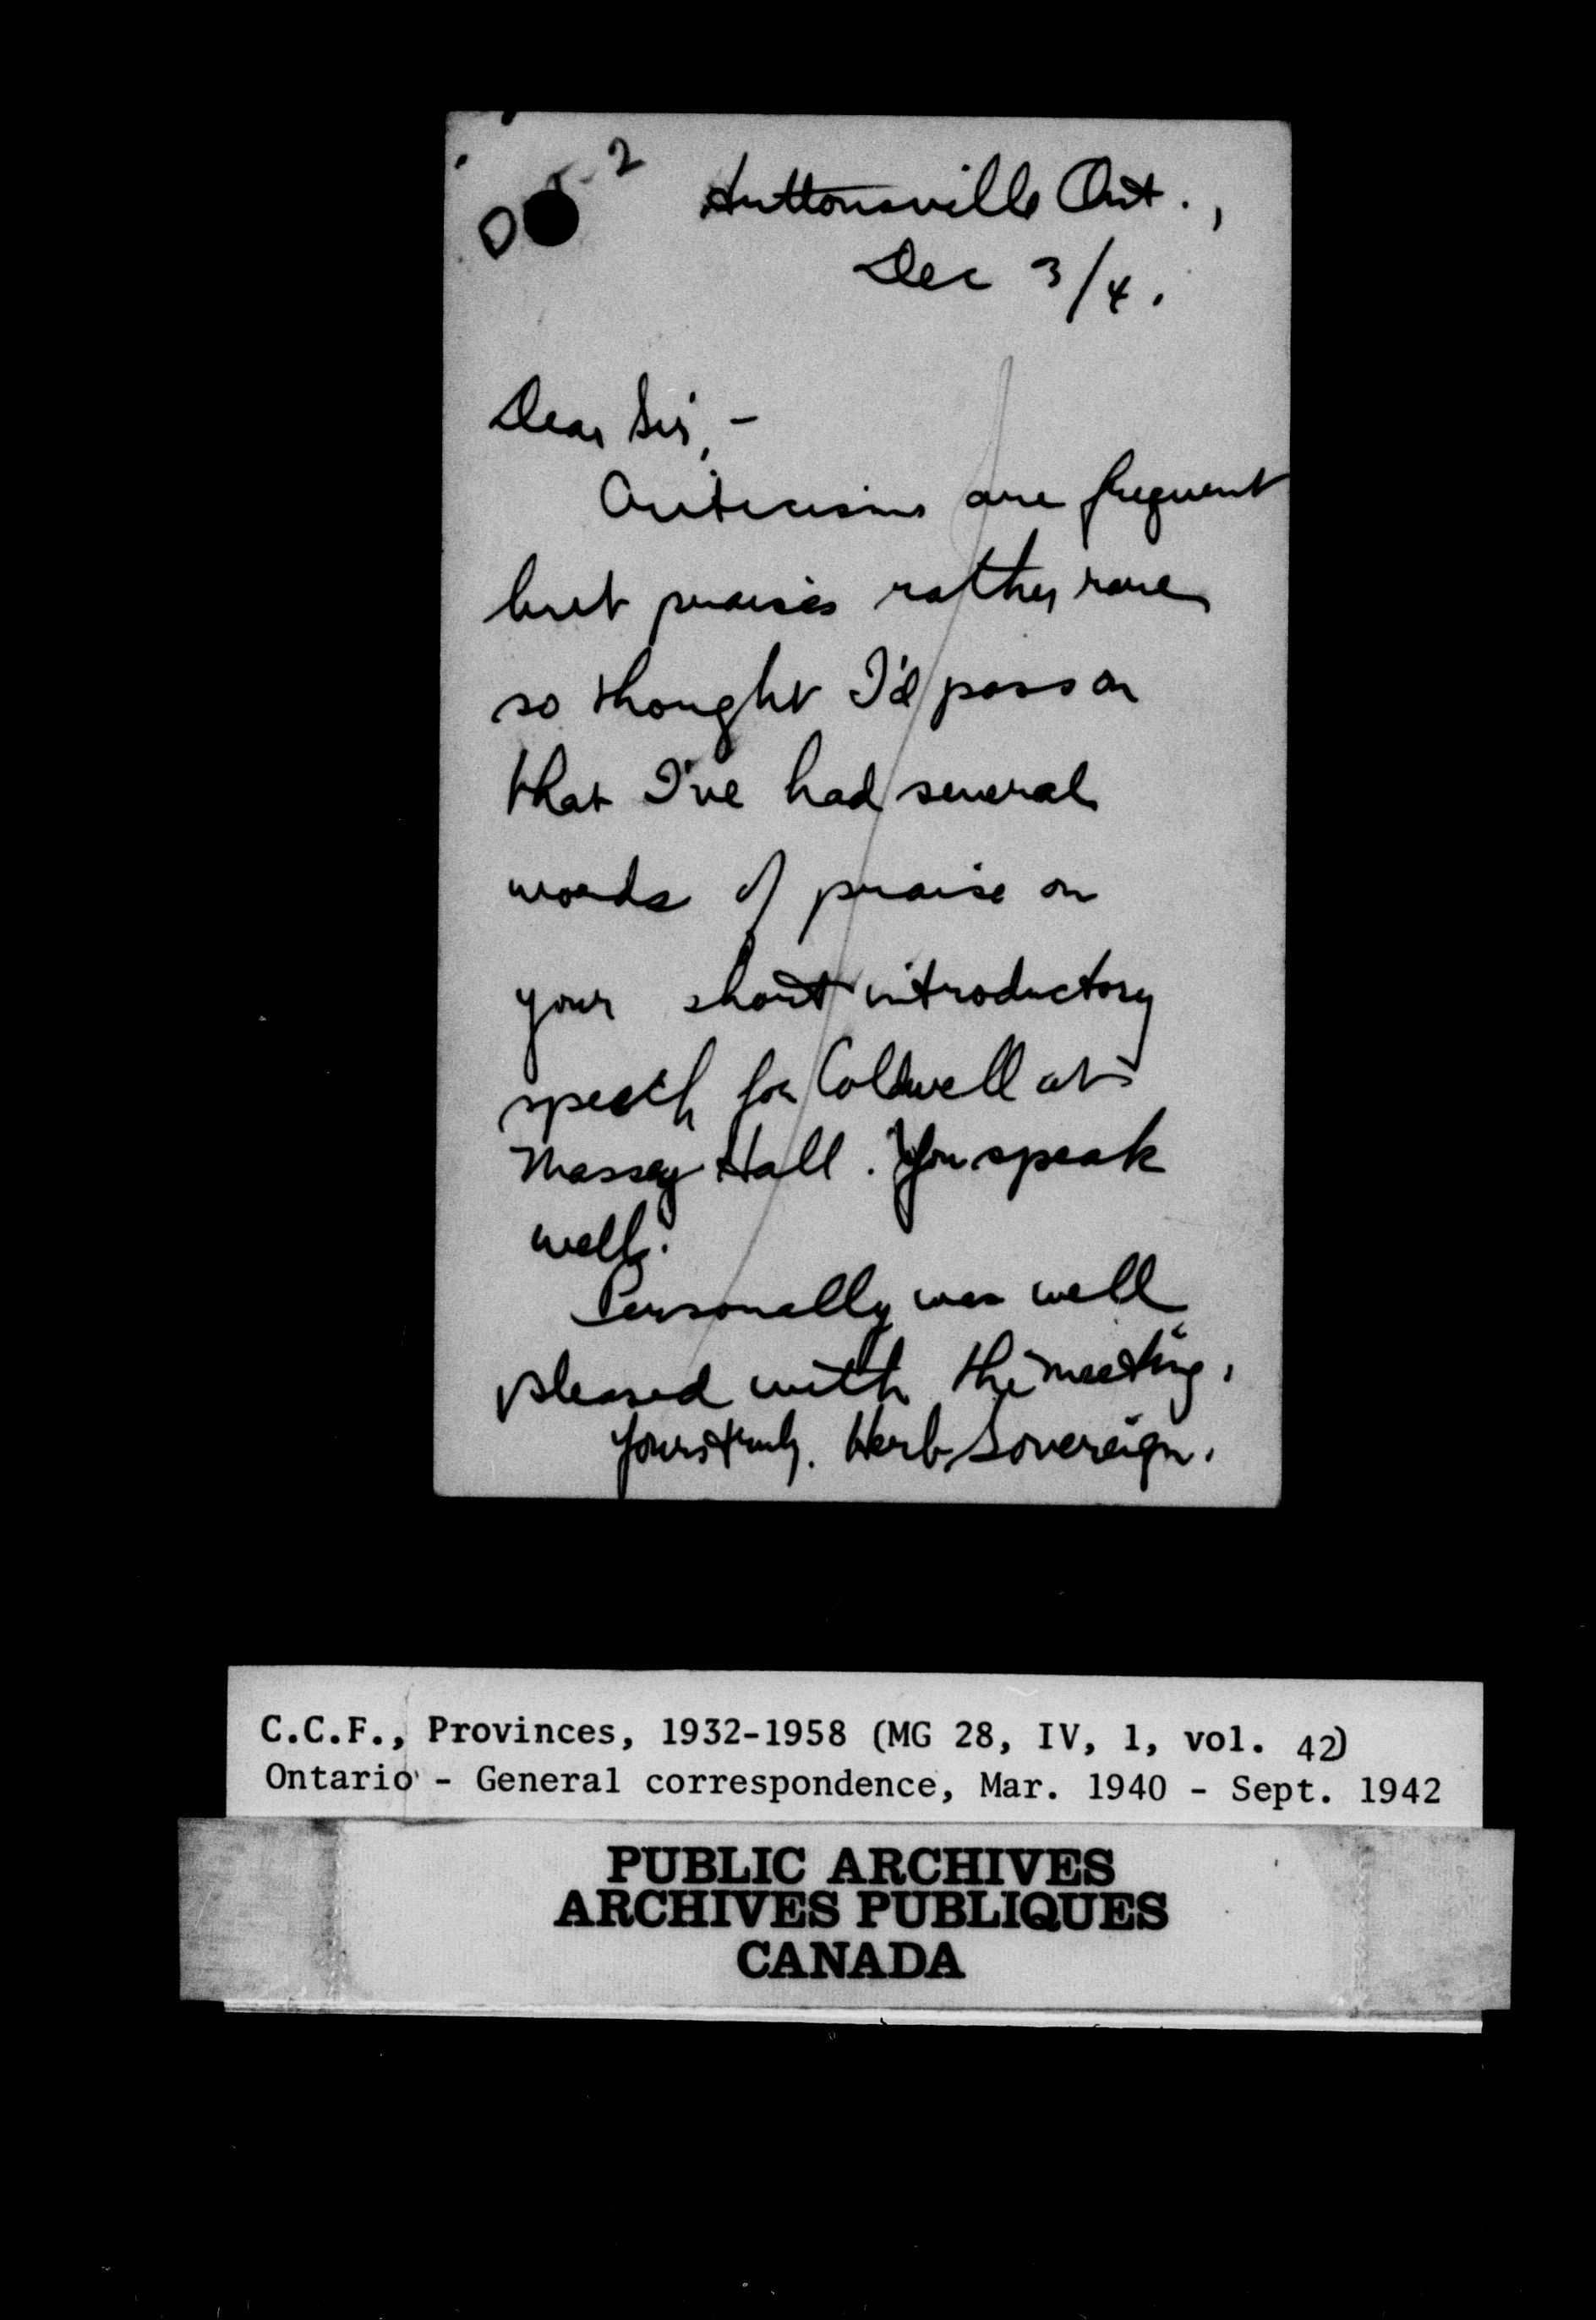 2
Huttonsville Ont.,
Dec 3/4.
Dear Sir, -
Criticisms are frequent
but praises rather rare
so thought I'd pass on
that I've had several
words of praise on
your short introductory
speech for Coldwell at
Massey Hall. You speak
well.
Personally was well
pleased with the meeting.
Yours truly. Herb Sovereign.
C.C.F., Provinces, 1932-1958 (MG 28, IV, 1, vol. 42)
Ontario - General correspondence, Mar. 1940 - Sept. 1942
PUBLIC ARCHIVES
ARCHIVES PUBLIQUES
CANADA